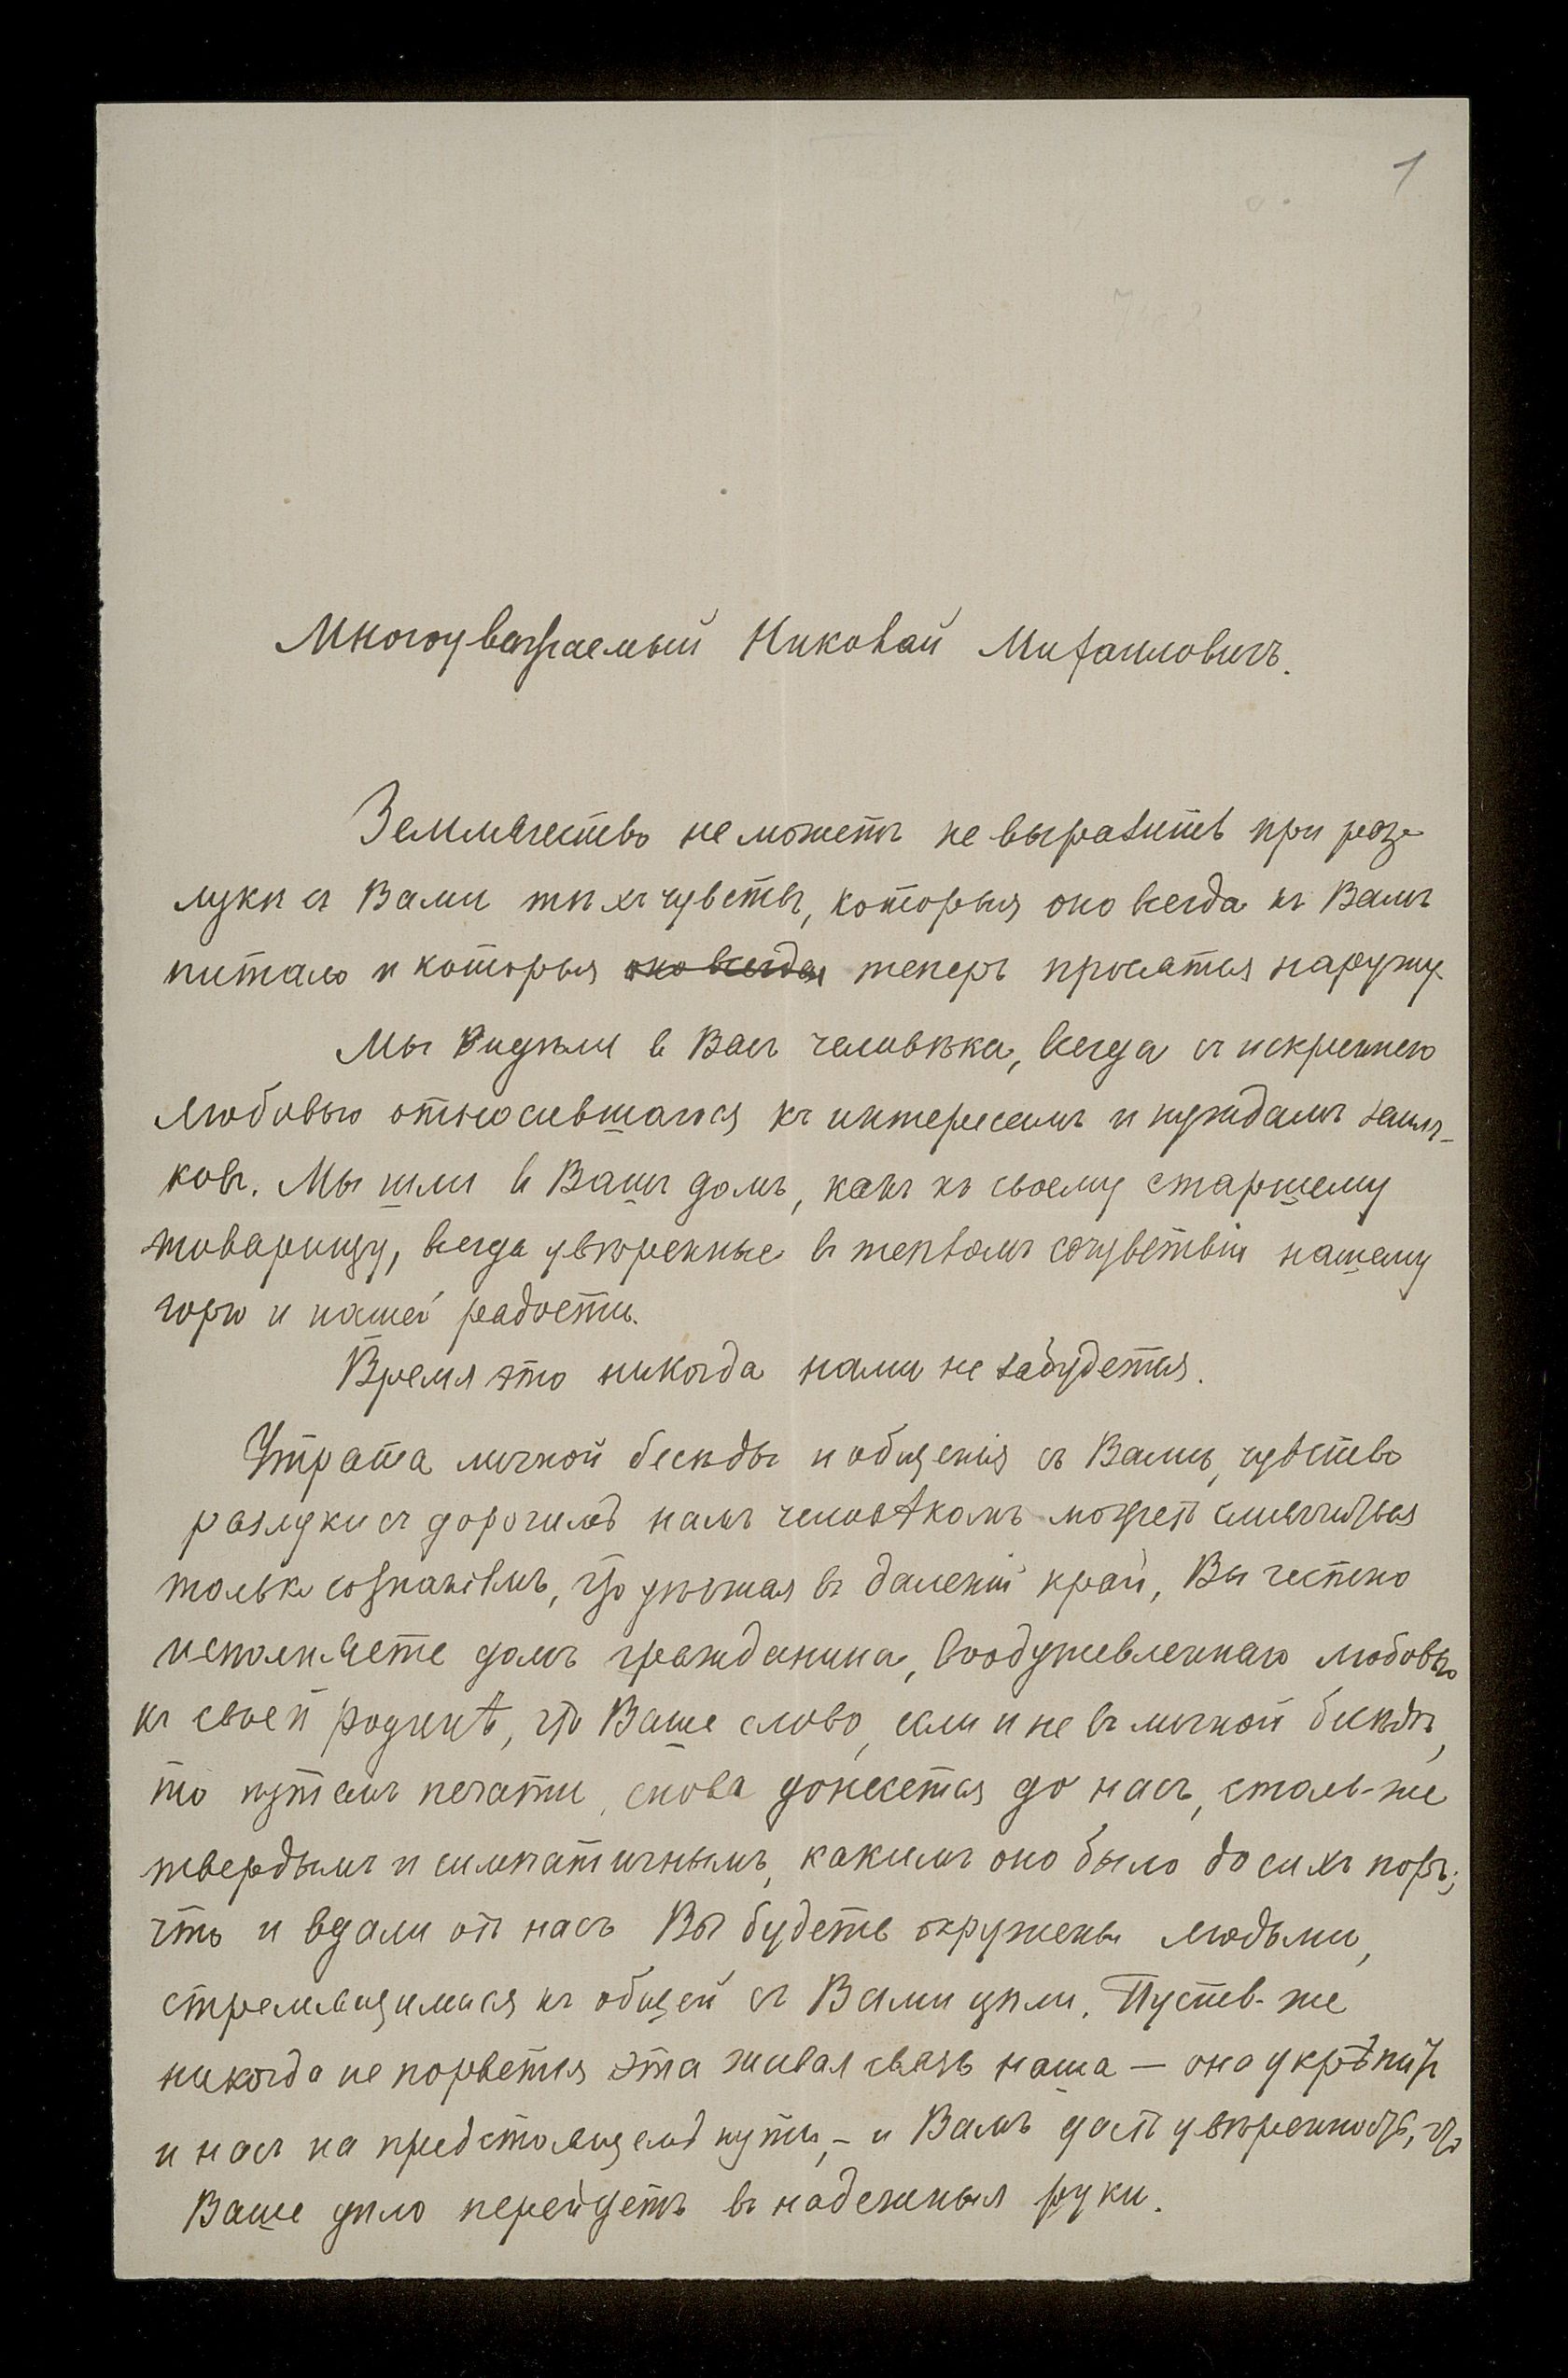 1
Многоуважаемый Николай Михаиловичъ.
Землячество не можетъ не выразить при раз-
лукѣ съ Вами тѣхъ чувствъ, которыя оно всегда къ Вамъ
питало и которыя оно всегда теперь просятся наружу.
Мы видѣли в Васъ человѣка, всегда съ искреннею
любовью относившагося къ интересамъ и нуждамъ земля-
ковъ. Мы шли в Вашъ домъ, какъ къ своему старшему
товарищу, всегда увѣренные въ тепломъ сочувствіи нашему
горю и нашей радости.
Время это никогда нами не забудется.
Утрата личной бесѣды и общенія съ Вами, чувство
разлуки съ дорогимъ намъ человѣкомъ можетъ смягчиться
только сознаніемъ, что уѣзжая въ далекій край, Вы честно
исполняете долгъ гражданина, воодушевленнаго любовью
къ своей родинѣ, что Ваше слово, если и не въ личной бесѣдѣ,
то путемъ печати, снова донесется до насъ, столь-же
твердымъ и симпатичнымъ, какимъ оно было до сихъ поръ;
что и вдали отъ насъ Вы будете окружены людьми,
стремящимися къ общей съ Вами цѣли. Пусть-же
никогда не порвется эта живая связь наша — она укрѣпитъ
и насъ на предстоящемъ пути, - и Вамъ дастъ увѣренность, что
Ваше дѣло перейдетъ въ надежныя руки.